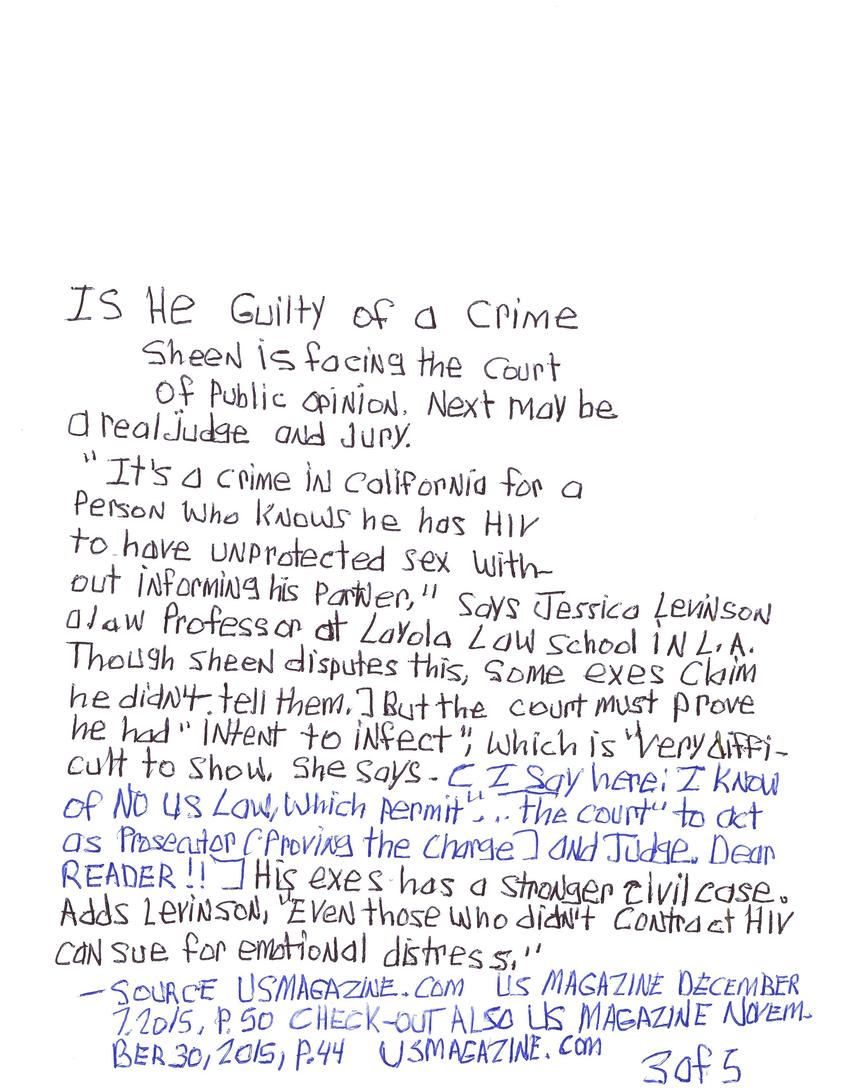 IS He Guilty of a Crime
Sheen is facing the Court
Of Public opinion. Next may be
a real judge and Jury.
"It's a crime in California for a
Person Who Knows he has HIV
to have unprotected sex with-
out informing his Partner," Says Jessica Levinson
a law Professor at Layola Law School in L.A.
Though Sheen disputes this, some exes Claim
he didn't tell them.] But the court must prove
he had "intent to infect", which is "very diffi-
cult to show, she says - [ I Say here: I Know
of No US Law, Which permit "... the court" to act
as Prosecutor (Proving the Charge] and Judge. Dear
READER!! ] His exes has a stronger civil case.
Adds Levinson, "Even those who didn't Contract HIV
can sue for emotional distress,"
- SOURCE USMAGAZINE.Com US MAGAZINE DECEMBER
7.2015, P.50 CHECK-OUT ALSO US MAGAZINE NOVEM-
BER 30, 2015, P.44 USMAGAZINE.com
3 of 5